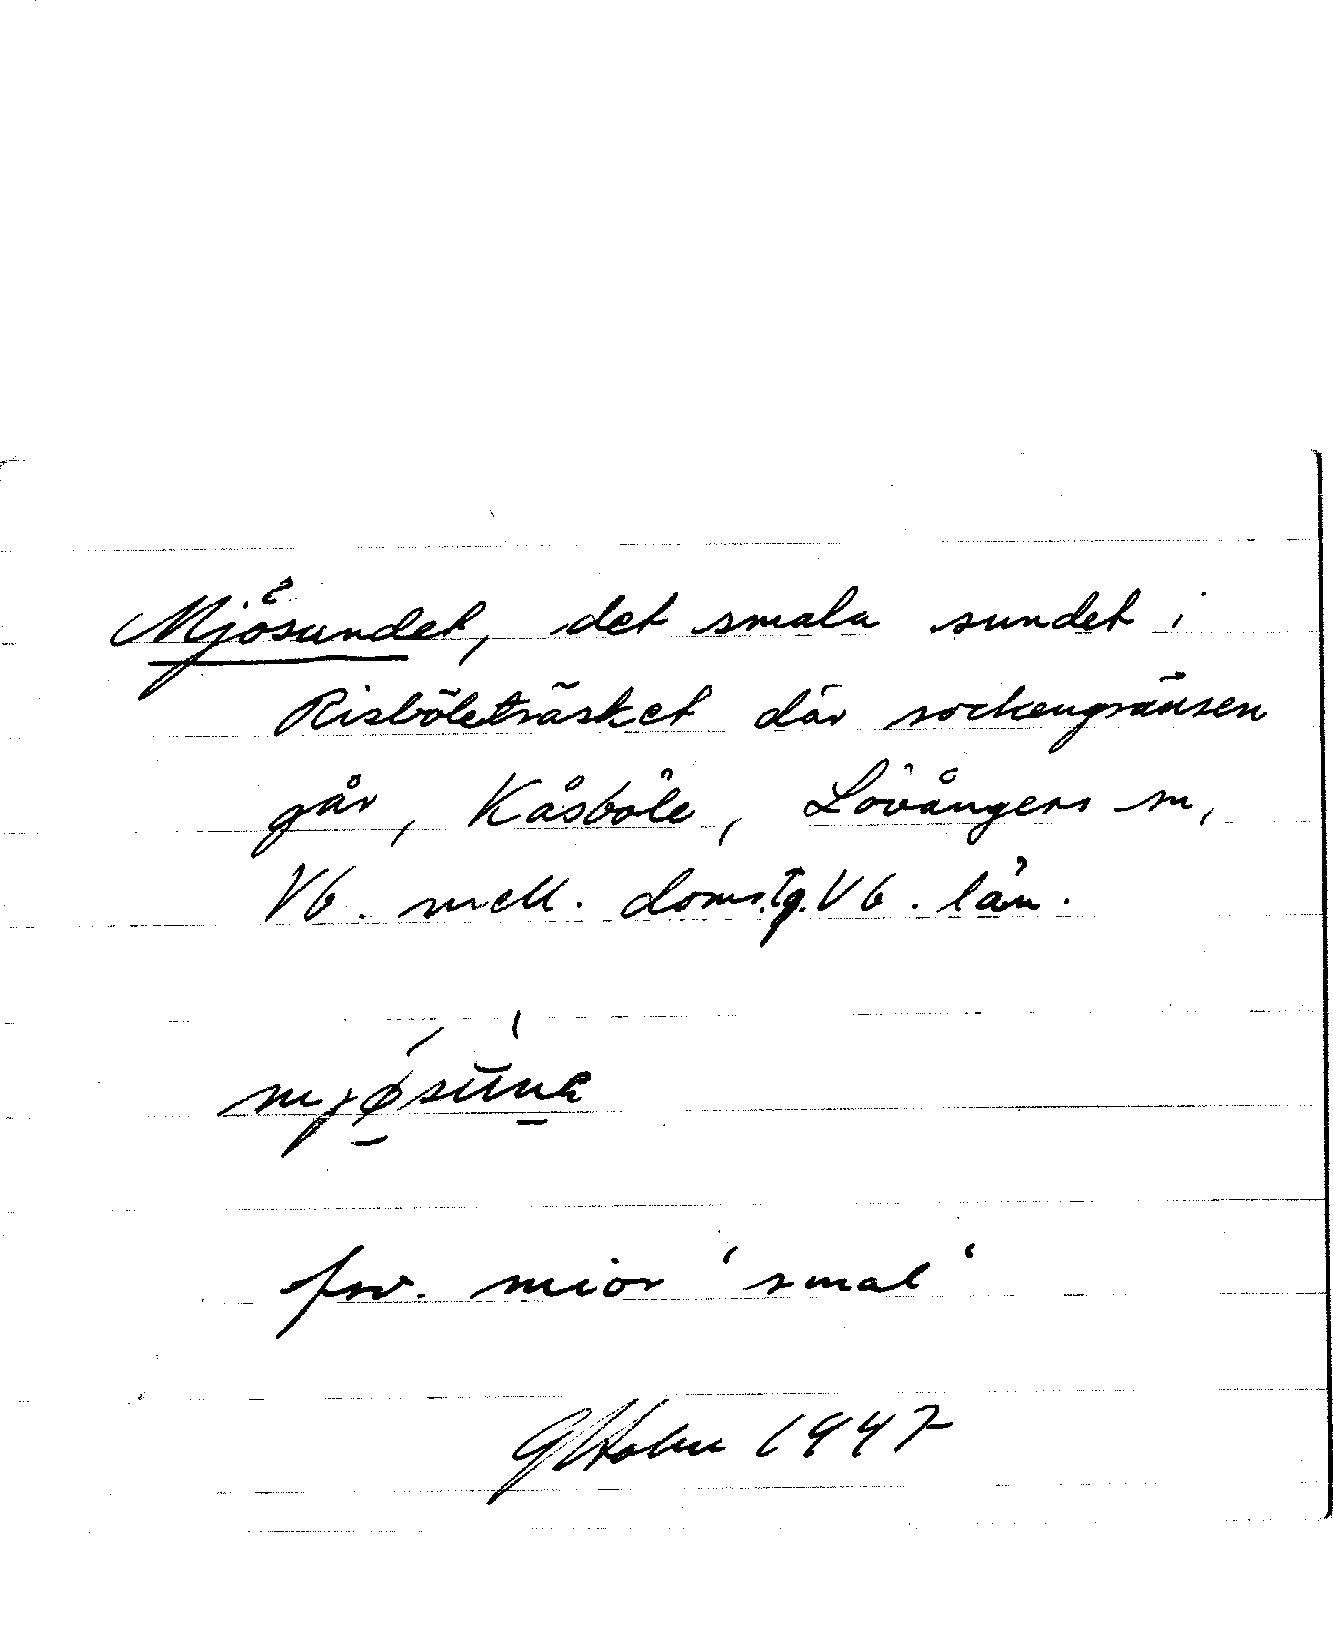 Mjösundet, det smala sundet i
Risböleträsket där sockengränsen
går, Kåsböle, Lövångers sn,
Vb. mell. doms.tg. Vb. län.
mjøsúnɐ
fsv. mior 'smal'
G Holm 1947